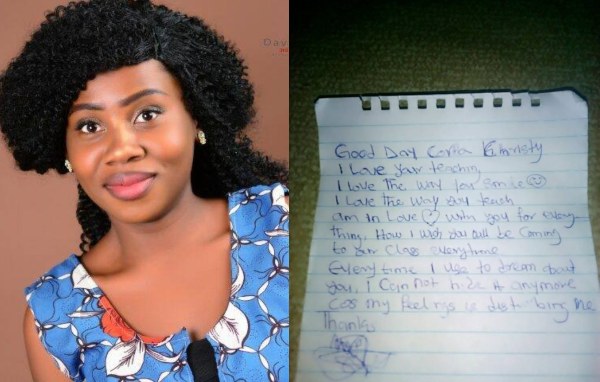 Dav
Good Day
I Love Your teaching
I Love The way you Smile
I Love The Way you teach
am in Love with you for every
thing, How I wish you will be Coming
to our Class everytime
Everytime I use to dream about
you, I Can not hide it anymore
Cos my feelings is disturbing me
Thanks